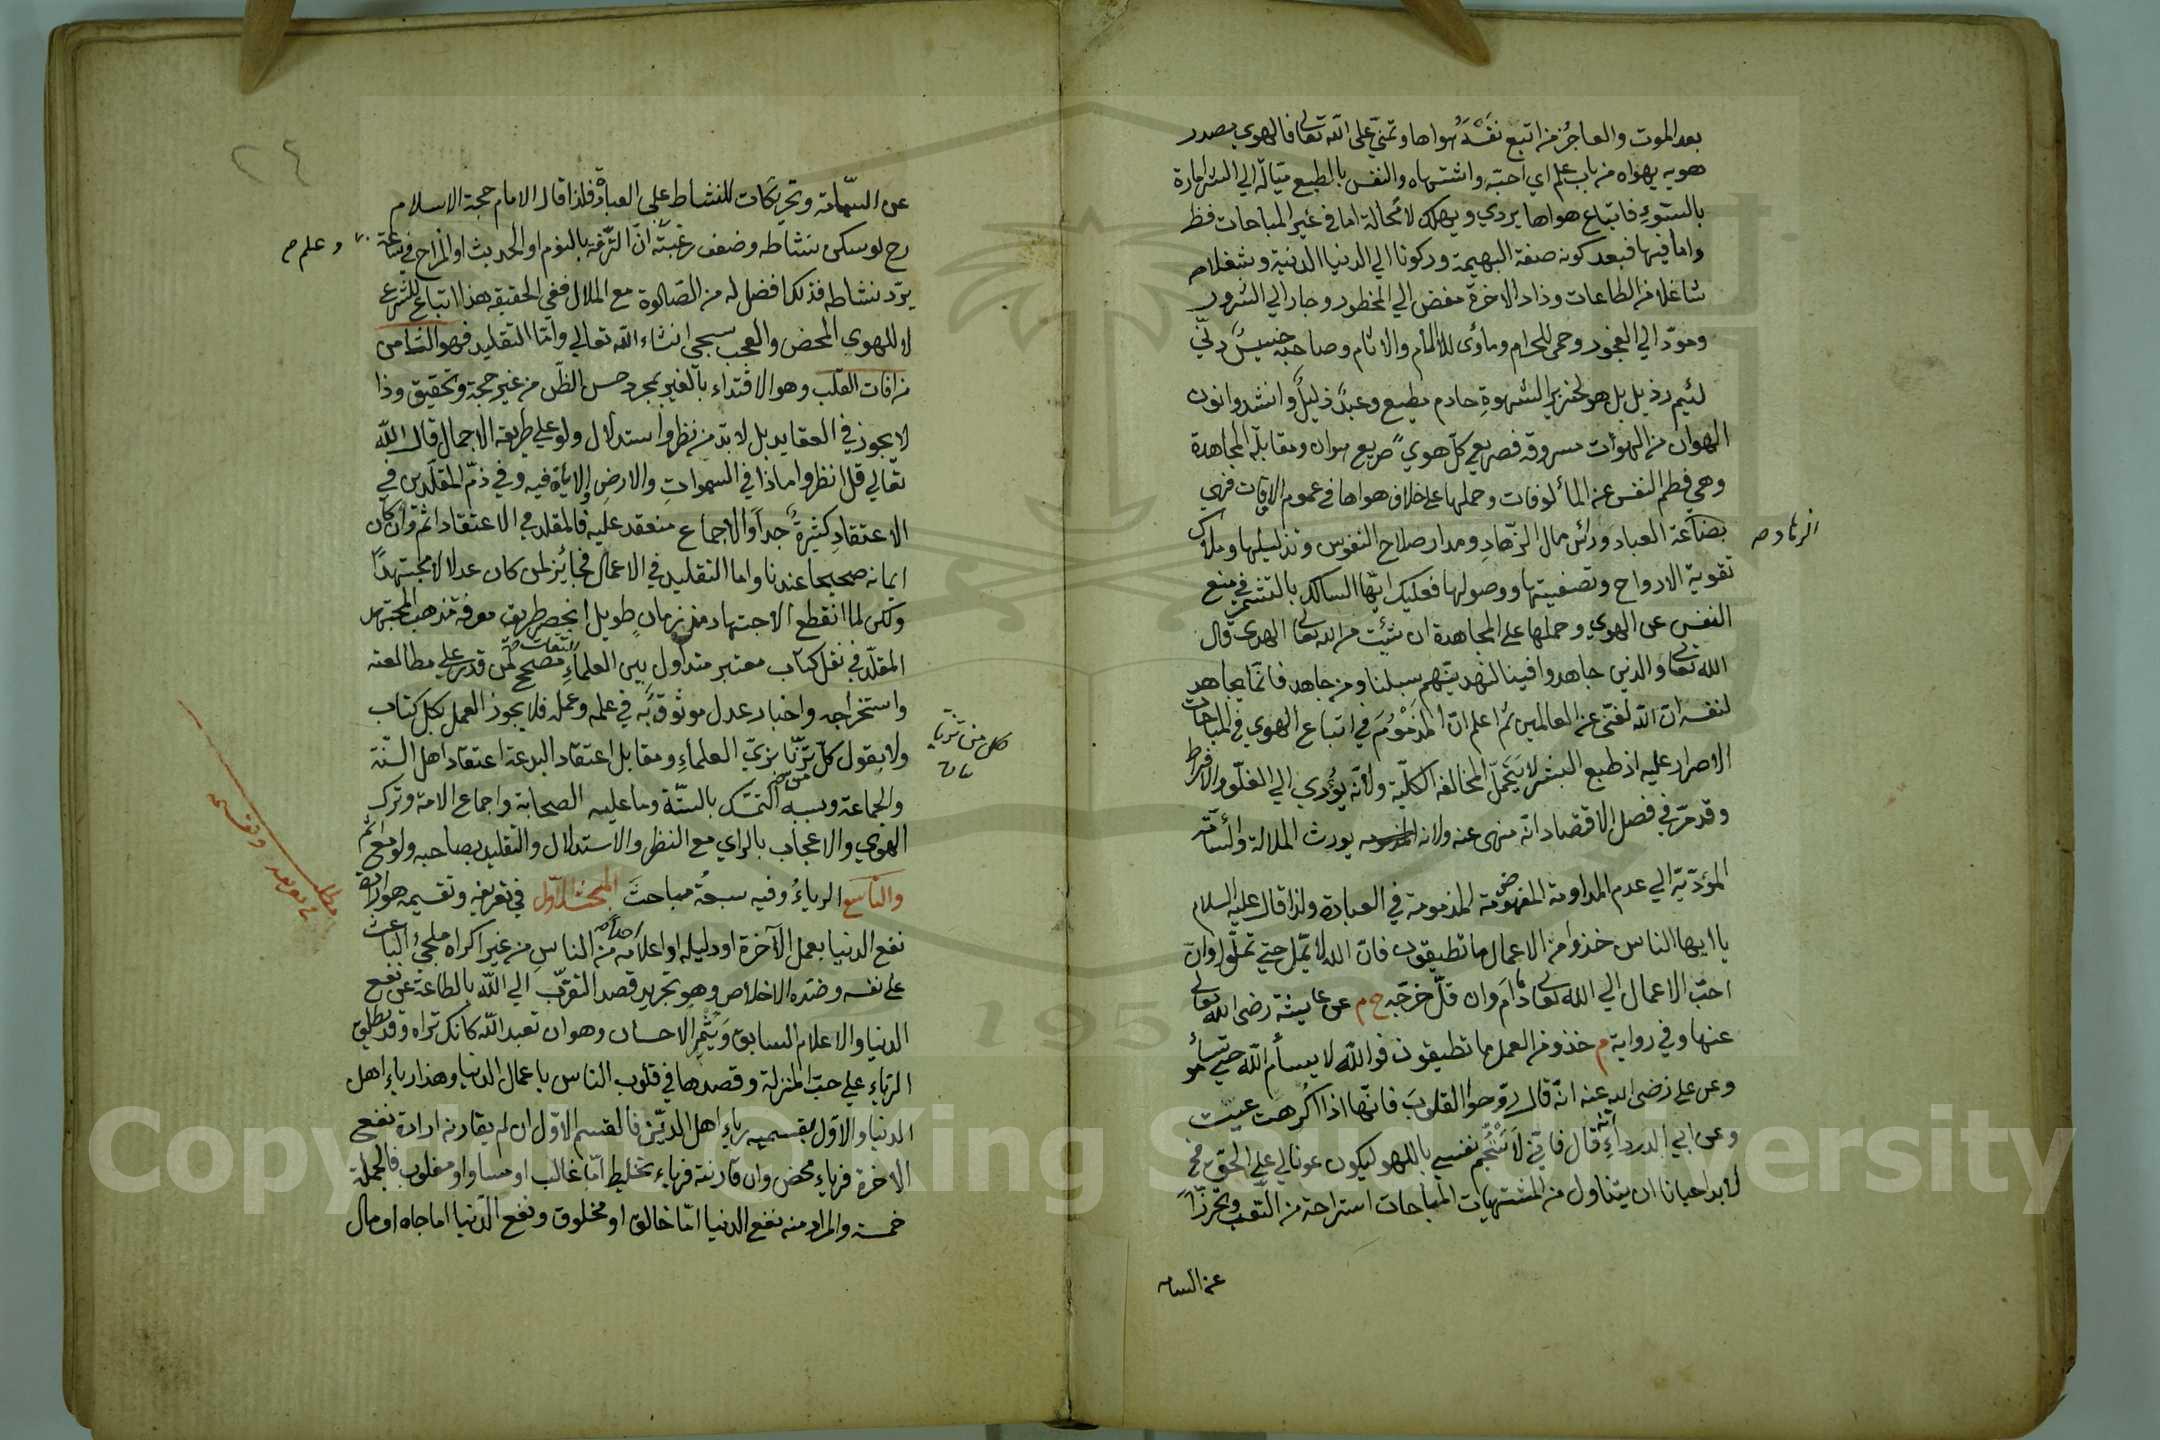 بعد الموت والعاجز من اتبع نفسه هواها وتمنى على الله تعالى فالهوى مصدر
هويه يهواه من باب علم اي احبّه واشتهاه والنفس بالطبع ميّالة الي الشر امارة
بالسّوء فاتباع هواها يردي ويهلك لا محالة اما في غير المباحات فظ
واما فيها فبعد كونه صفة البهيمة وركونا الي الدنيا الدنية وشغلا
شاغلا عن الطاعات وزاد الاخرة مفض الي المحظور وجار الي الشرور
ومؤد الي الفجور وحمى للحرام ومأوى للآلام والاثام وصاحبه خسيس دنيّ
لئيم رذيل بل هو لخنزير الشهوة خادم مطيع وعبد ذليل وانشدوا نون
الهوان من الهوى مسروقة فصريع كل هوى صريع هوان ومقابله المجاهدة
وهي فطم النفس عن المألوفات وحملها على خلاف هواها في عموم الاوقات فهي
بضاعة العباد ورأس مال الزهاد ومدار صلاح النفوس وتذليلها وملاك
الزهاد صح
تقوية الارواح وتصفيتها ووصولها فعليك ايّها السالك بالتشمّر في منع
النفس عن الهوي وحملها على المجاهدة ان شئت من الله تعالى الهدى قال
الله تعالى والذين جاهدوا فينا لنهدينّهم سبلنا ومن جاهد فانما يجاهد
لنفسه ان الله لغني عن العالمين ثم اعلم ان المذموم في اتباع الهوى في المباحات
الاصرار عليه اذ طبع البشر لا يتحمل المخالفة الكلّية ولانّه يؤدي الي الغلو والافراط
وقد مرّ في فصل الاقتصاد انه منهى عنه ولانه يورث الملالة والسآمة
المؤدّية الي عدم المداومة المذمومة في العبادة ولذا قال عليه السلام
يا ايها الناس خذوا من الاعمال ما تطيقون فان الله لا يملّ حتي تملّوا وان
احبّ الاعمال الي الله تعالى ما دام وان قلّ خرّجه خ م عن عايشة رضى الله تعالى
عنها وفي رواية م خذوا من العمل ما تطيقون فوالله لا يسأم الله حتي تسأموا
وعن علي رضى الله عنه انه قال روّحوا القلوب فانّها اذا اكرهت عميت
وعن ابي الدرداء انه قال فانّي لاستجمّ نفسي باللهو ليكون عونا لي على الحق فح
لا بد احيانا ان يتناول من المشتهيات المباحات استراحة من التعب وتحرزا
عن السامة
٢٤
عن السّامة وتحركات للنشاط على العبادة فلذا قال الامام حجة الاسلام
رح لو سكن نشاطه وضعف رغبته ان الترفه بالنوم او الحديث او المزاح في ساعة
وعلم صح
يردّ نشاطه فذلك افضل له من الصّلوة مع الملال ففي الحقيقه هذا اتباع للشرع
لا للهوى المحض والعجب سيجي انشاء الله تعالي وامّا التقليد فهو الثامن
من افات القلب وهو الاقتداء بالغير بمجرد حسن الظن من غير حجة وتحقيق وذا
لا يجوز في العقايد بل لا بدّ من نظر واستدلال ولو علي طريقة الاجمال قال الله
تعالي قل انظروا ماذا في السموات والارض الاية فيه وفي ذمّ المقلّدين في
الاعتقاد كثيرة جدا والاجماع منعقد عليه فالمقلد في الاعتقاد اثم وان كان
ايمانه صحيحا عندنا واما التقليد في الاعمال فجائز لمن كان عدلا مجتهدا
ولكن لما انقطع الاجتهاد منذ زمان طويل انحصر طريق معرفة مذهب المجتهد
المقلّد في نقل كتاب معتبر متداول بين العلماء الثقات مصحح لمن قدر علي مطالعته
واستخراجه واخبار عدل موثوق به في علمه وعمله فلا يجوز العمل بكل كتاب
ولا بقول كلّ تزيّا بزيّ العلماء ومقابل اعتقاد البدعة اعتقاد اهل السّنة
كل من تزيا
والجماعة وسببه التمسّك بالسنّة وما عليه الصحابة واجماع الامة وترك
الهوي والاعجاب بالراي مع النظر والاستدلال والتقليد بصاحبه ولو مع اثم
والتاسع الرياء وفيه سبعة مباحث المبحث الاول في تعريفه وتقسيمه هو ارادة
مطلب في تعريفه وتقسيمه
نفع الدنيا بعمل الآخرة او دليله او اعلامه احدا من الناس من غير اكراه ملجئ الباعث
على نفسه وضدّه الاخلاص وهو تجريد قصد التقرّب الي الله بالطاعة عن نفع
الدنيا والاعلام السابق ويثمر الاحسان وهو ان تعبد الله كانك تراه وقد يطلق
الرياء علي حبّ المنزلة وقصدها في قلوب الناس باعمال الدنيا وهذا رياء اهل
الدنيا والاول بقسميه رياء اهل الدين فالقسم الاوّل ان لم يقارنه ارادة نفع
الاخرة فرياء محض وان قارنته فرياء تخليط امّا غالب او مساو او مغلوب فالجملة
خمسة والمراد منه نفع الدنيا امّا خالق او مخلوق ونفع الدّنيا اما جاه او مال
1957
Copyright © King Saud University